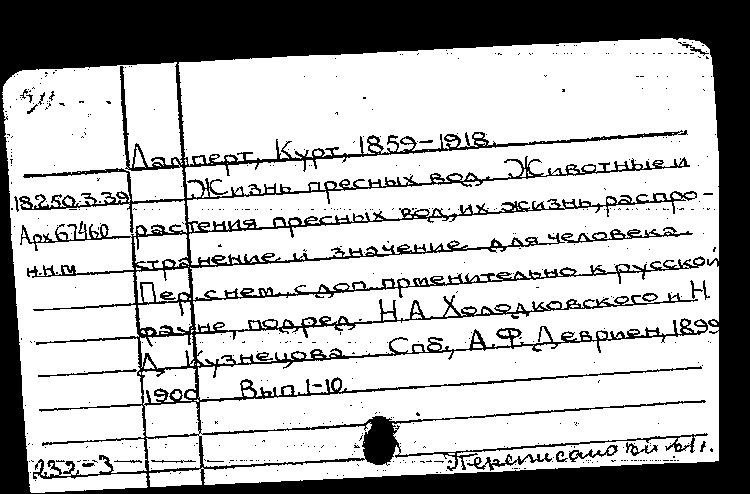 Ламперт, Курт, 1859-1918.
Жизнь пресных вод. Животные и
18.250.3.39
растения пресных вод, их жизнь, распро-
Арх 67460
странение и значение для человека.
н.н.м
Пер. с нем. с доп. прменительно к русской
фауне, под ред. Н.А. Холодковского и Н.
Д. Кузнецова. Спб., А.Ф. Девриен, 1899
1900 Вып. 1-10.
232-3
Переписано